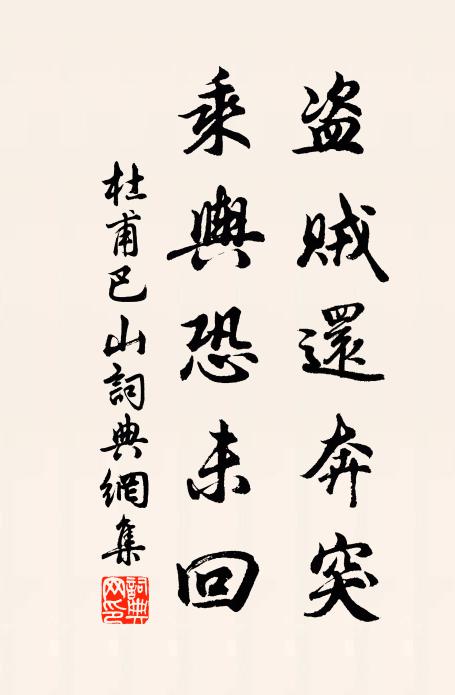 盜賊還奔突
乘輿恐未回
杜甫巴山詞典網集
詞典
網印